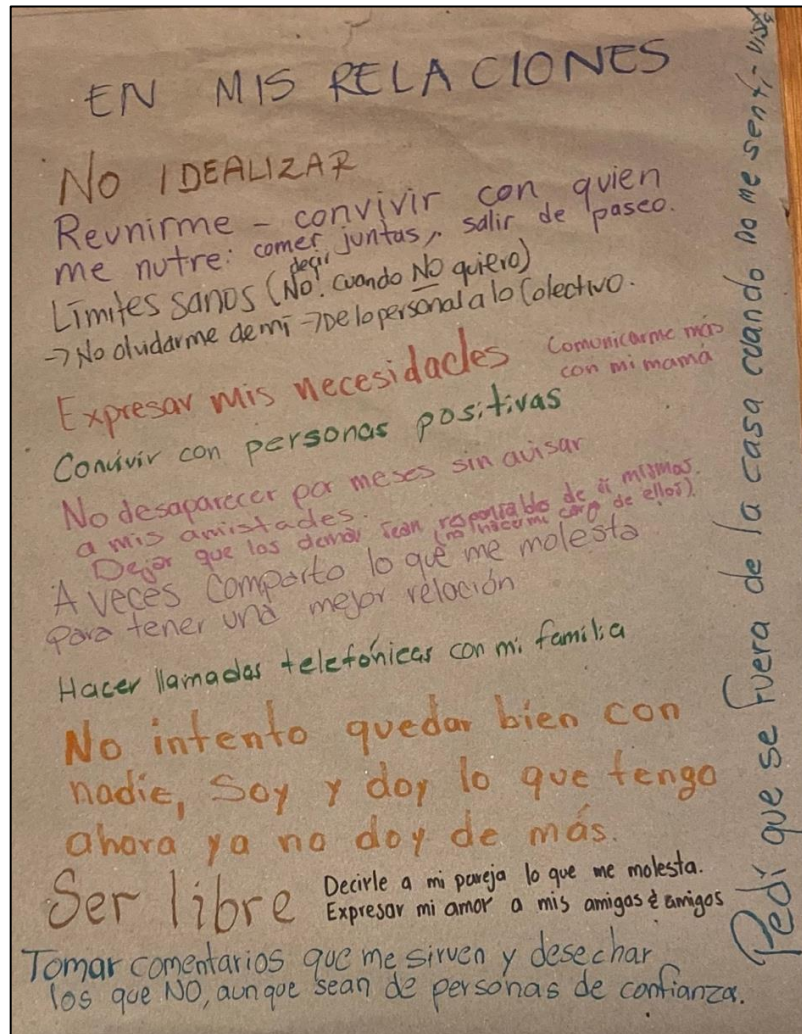 EN MIS RELACIONES
NO IDEALIZAR
Reunirme - convivir con quien
me nutre: comer juntas, salir de paseo.
Límites sanos (decir No! cuando NO quiero)
→ No oludarme de mi → De lo personal a lo Colectivo.
Expresar mis necesidades
Comunicarme más
con mi mamá
Convivir con personas positivas
No desaparecer por meses sin avisar
a mis amistades.
Dejar que las demás sean responsables de sí mismas.
(no hacerme cargo de ellos)
A veces comparto lo que me molesta
para tener una mejor relación
Hacer llamadas telefónicas con mi familia
No intento quedar bien con
nadie, Soy y doy lo que tengo
ahora ya no doy de más.
Ser libre
Decirle a mi pareja lo que me molesta.
Expresar mi amor a mis amigas & amigos
Tomar comentarios que me sirven y desechar
los que NO, aunque sean de personas de confianza.
Pedí que se fuera de la casa cuando no me sentí vista